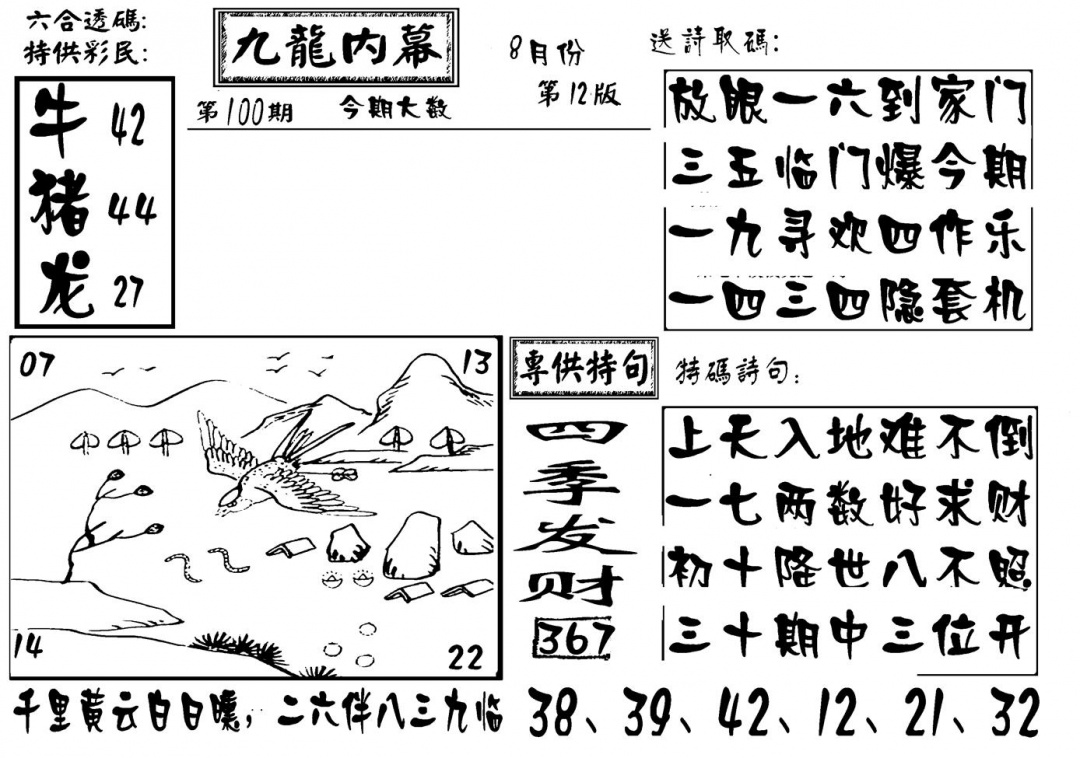 六合透碼:
特供彩民:
牛 42
猪 44
龙 27
九龍内幕
8月份
第12版
第100期 今期大数
送詩取碼:
放眼一六到家门
三五临门爆今期
一九寻欢四作乐
一四三四隐套机
07 13
14 22
専供特句
四季发财
367
特碼詩句:
上天入地难不倒
一七两数好求财
初十降世八不照
三十期中三位开
千里黄云白日曛,二六伴八三九临
38、39、42、12、21、32